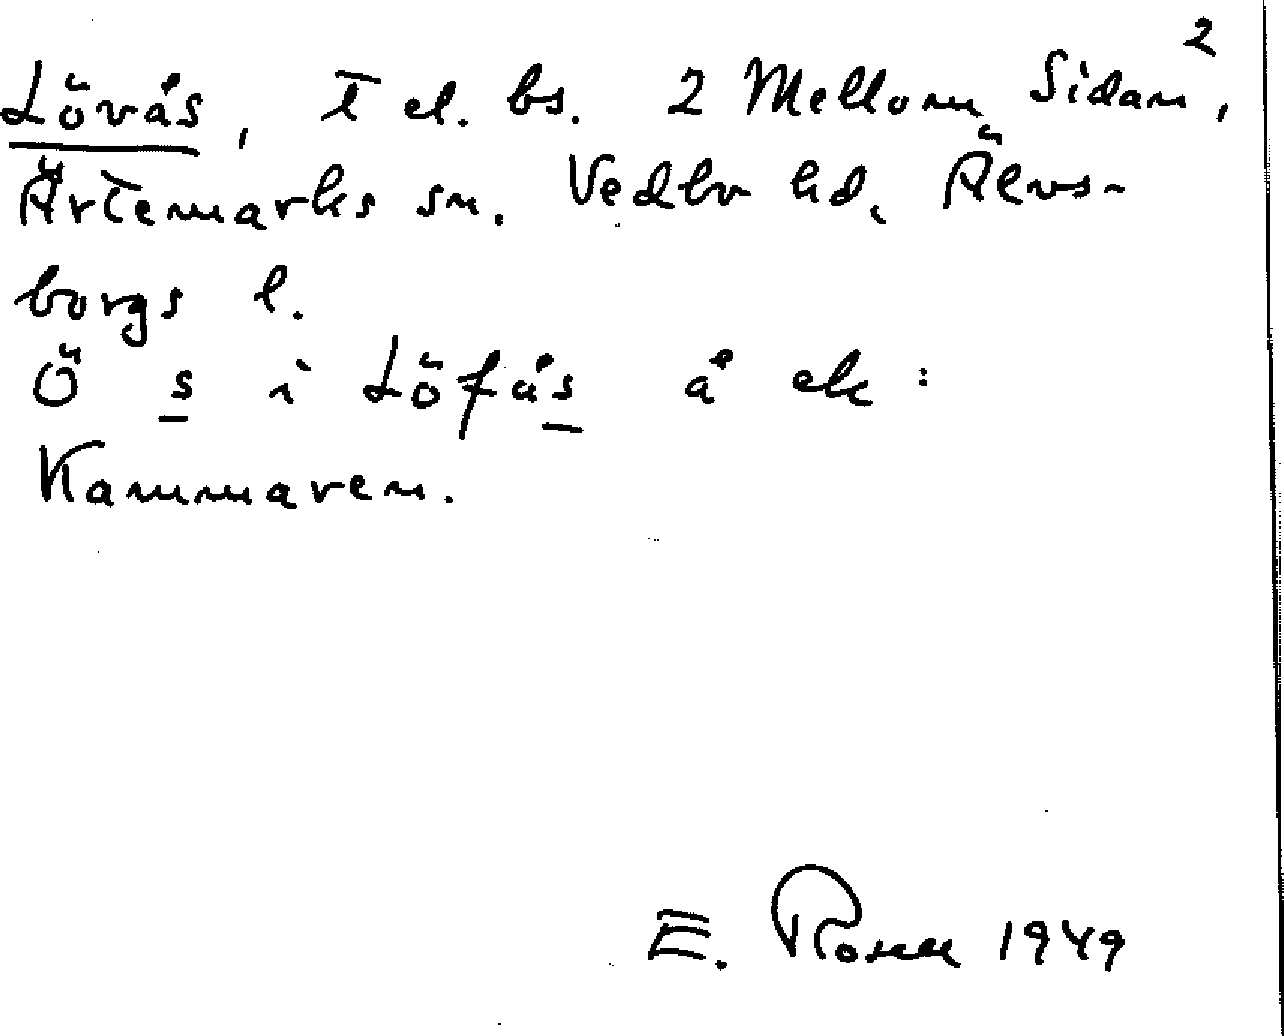 Lövås, t el. bs. 2 Mellom Sidan²,
Ärtemarks sn. Vedbo hd. Älvs-
borgs l.
Ö s i Löfås å ek:
Kammaren.
E. Rosell 1949